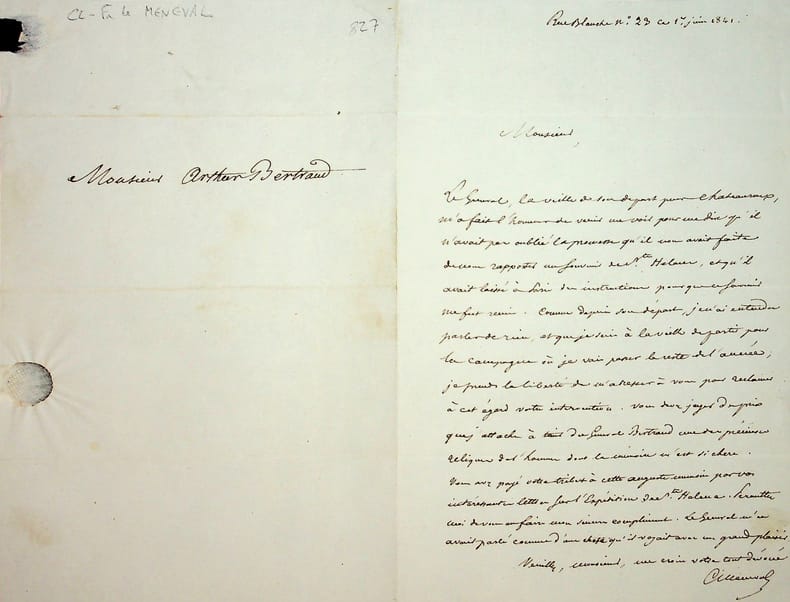 CL-Fr de MENEVAL
827
Monsieur Arthur Bertrand
Rue Blanche n° 23 ce 1er juin 1841.
Monsieur,
Le Général, la veille de son départ pour Chateauroux,
m'a fait l'honneur de venir me voir pour me dire qu'il
n'avait pas oublié la promesse qu'il m'avait faite
de me rapporter un souvenir de Ste Helene, et qu'il
avait laissé à des instructions pour que ce souvenir
me fut remis. Comme depuis son départ, je n'ai entendu
parler de rien, et que je suis à la veille de partir pour
la campagne où je vais passer le reste de l'année,
je prends la liberté de m'adresser à vous pour réclamer
à cet égard votre intervention. Vous devez juger du prix
que j'attache à tenir du Général Bertrand une des précieuses
reliques de l'homme dont la mémoire m'est si chère.
Vous avez payé votre tribut à cette auguste mémoire par vos
intéressantes lettres sur l'Expédition de Ste Helene. Permettez
moi de vous en faire mon sincère compliment. Le Général m'en
avait parlé comme d'une chose qu'il voyait avec un grand plaisir
Veuillez, monsieur, me croire votre tout dévoué
C. Meneval